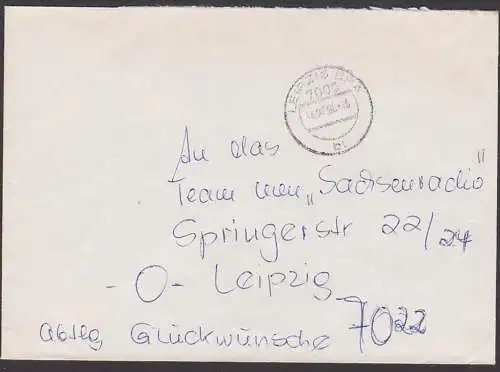 LEIPZIG BPA
7002
bl
An das
Team von „Sachsenradio"
Springerstr 22/24
-O- Leipzig
7022
Abtlg Glückwünsche